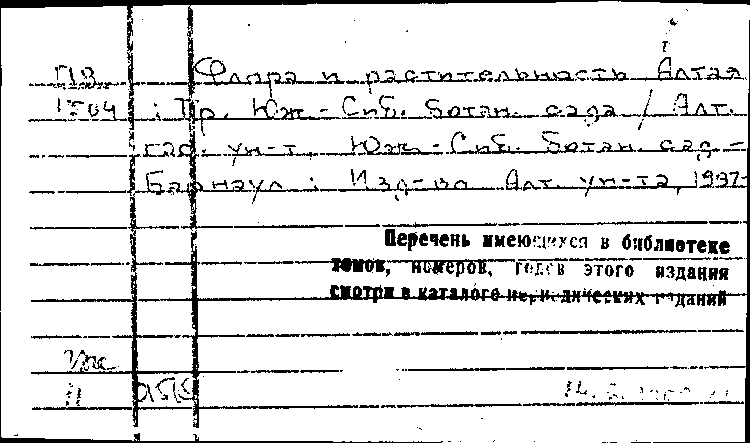 П8 Флора и растительность Алтая
1704 : Тр. Юж-Сиб. ботан. сада / Алт.
гос. ун-т, Юж.-Сиб. ботан. сад -
Барнаул : Изд-во Алт. ун-та, 1997-
Перечень имеющихся в библиотеке
томов, номеров, годов этого издания
смотри в каталоге периодических изданий